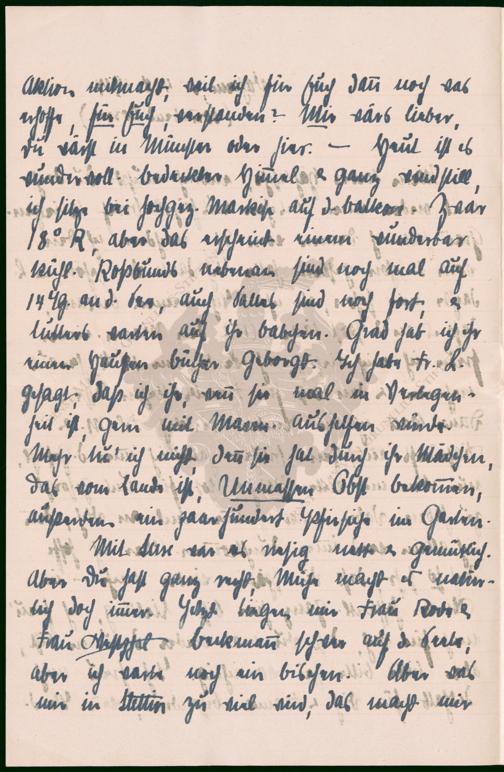 Aktion mitmacht, weil ich für Euch dann noch was
erhoffe, für Euch, verstanden? Mir wärs lieber,
du wärst in Münster oder hier. — Heut ist es
wundervoll. bedeckter Himmel & ganz windstill,
ich sitze bei hochgez. Markise auf d. balkon. Zwar
18° R, aber das erscheint einem wunderbar
kühl. Roßbunds nebenan sind noch mal auf
14 Tg an d. See, auch sind noch fort, &
Lutters warten auf ihr babychen. Grad hab ich ihr
einen Haufen bücher geborgt. Ich habe Fr. L.
gesagt, daß ich ihr, wenn sie mal in Verlegen-
heit ist, gern mit Marm. aushelfen würde.
Mehr tu' ich nicht, denn sie hat durch ihr Mädchen,
das vom Lande ist, Unmassen Obst bekommen,
ausserdem ein paar hundert Pfirsiche im Garten.
Mit war es riesig nett & gemütlich.
Aber Du hast ganz recht, Mühe macht es natür-
lich doch immer. Jetzt liegen mir Frau Rode &
Frau beckmann schwer auf d. Seele,
aber ich warte noch ein bischen. Aber was
mir in Stettin zu viel wird, das macht mir